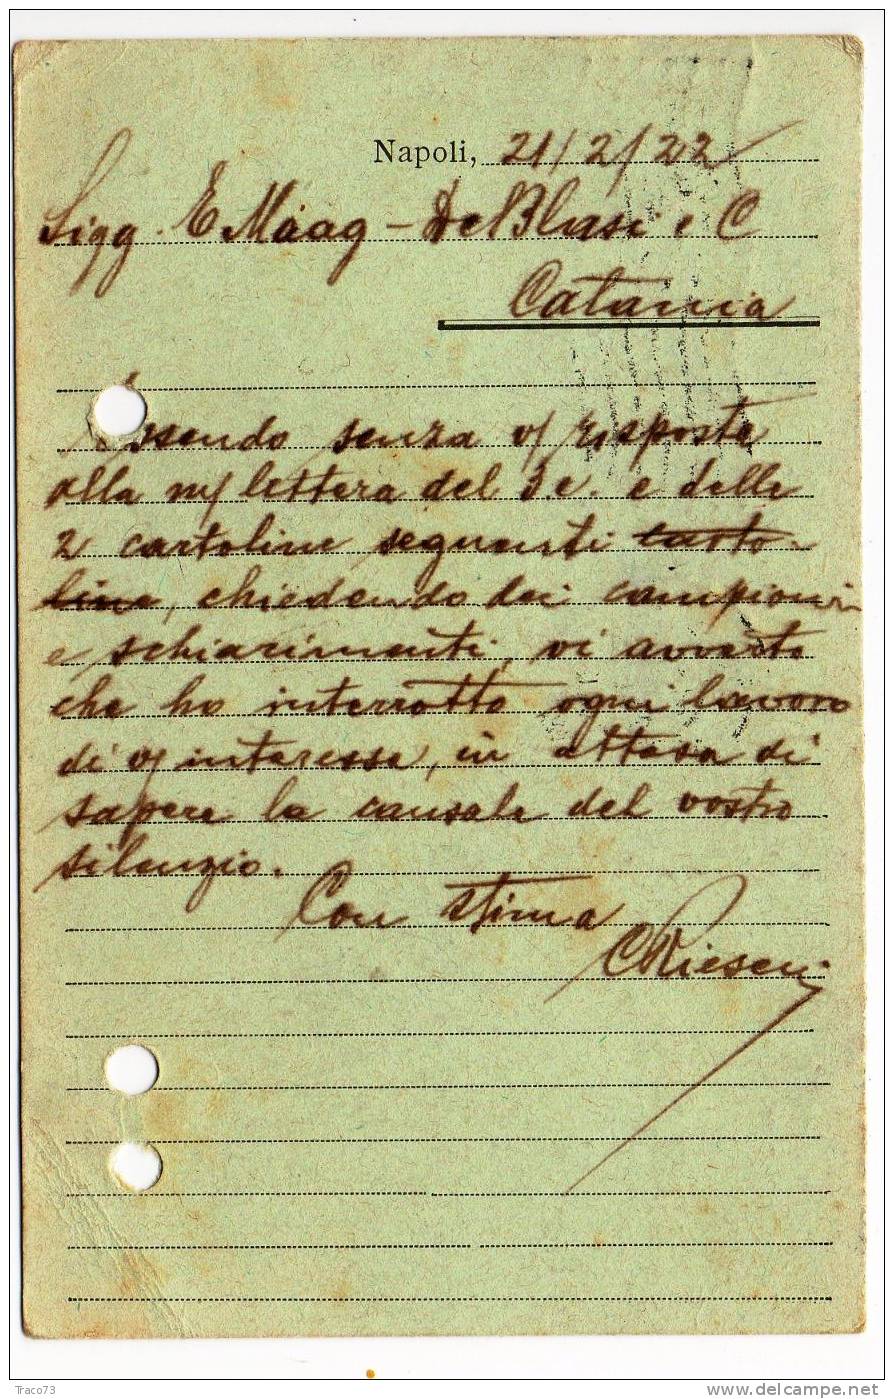 Napoli, 21/2/22
Sigg. E Maag - De Blasi e C
Catania
Essendo senza v/ risposta
alla m/ lettera del 3 c. e delle
2 cartoline seguenti carto-
line, chiedendo dei campioni
e schiarimenti, vi avverto
che ho interrotto ogni lavoro
di v/ interesse, in attesa di
sapere la causale del vostro
silenzio.
Con stima
Traco73
delcampe.net